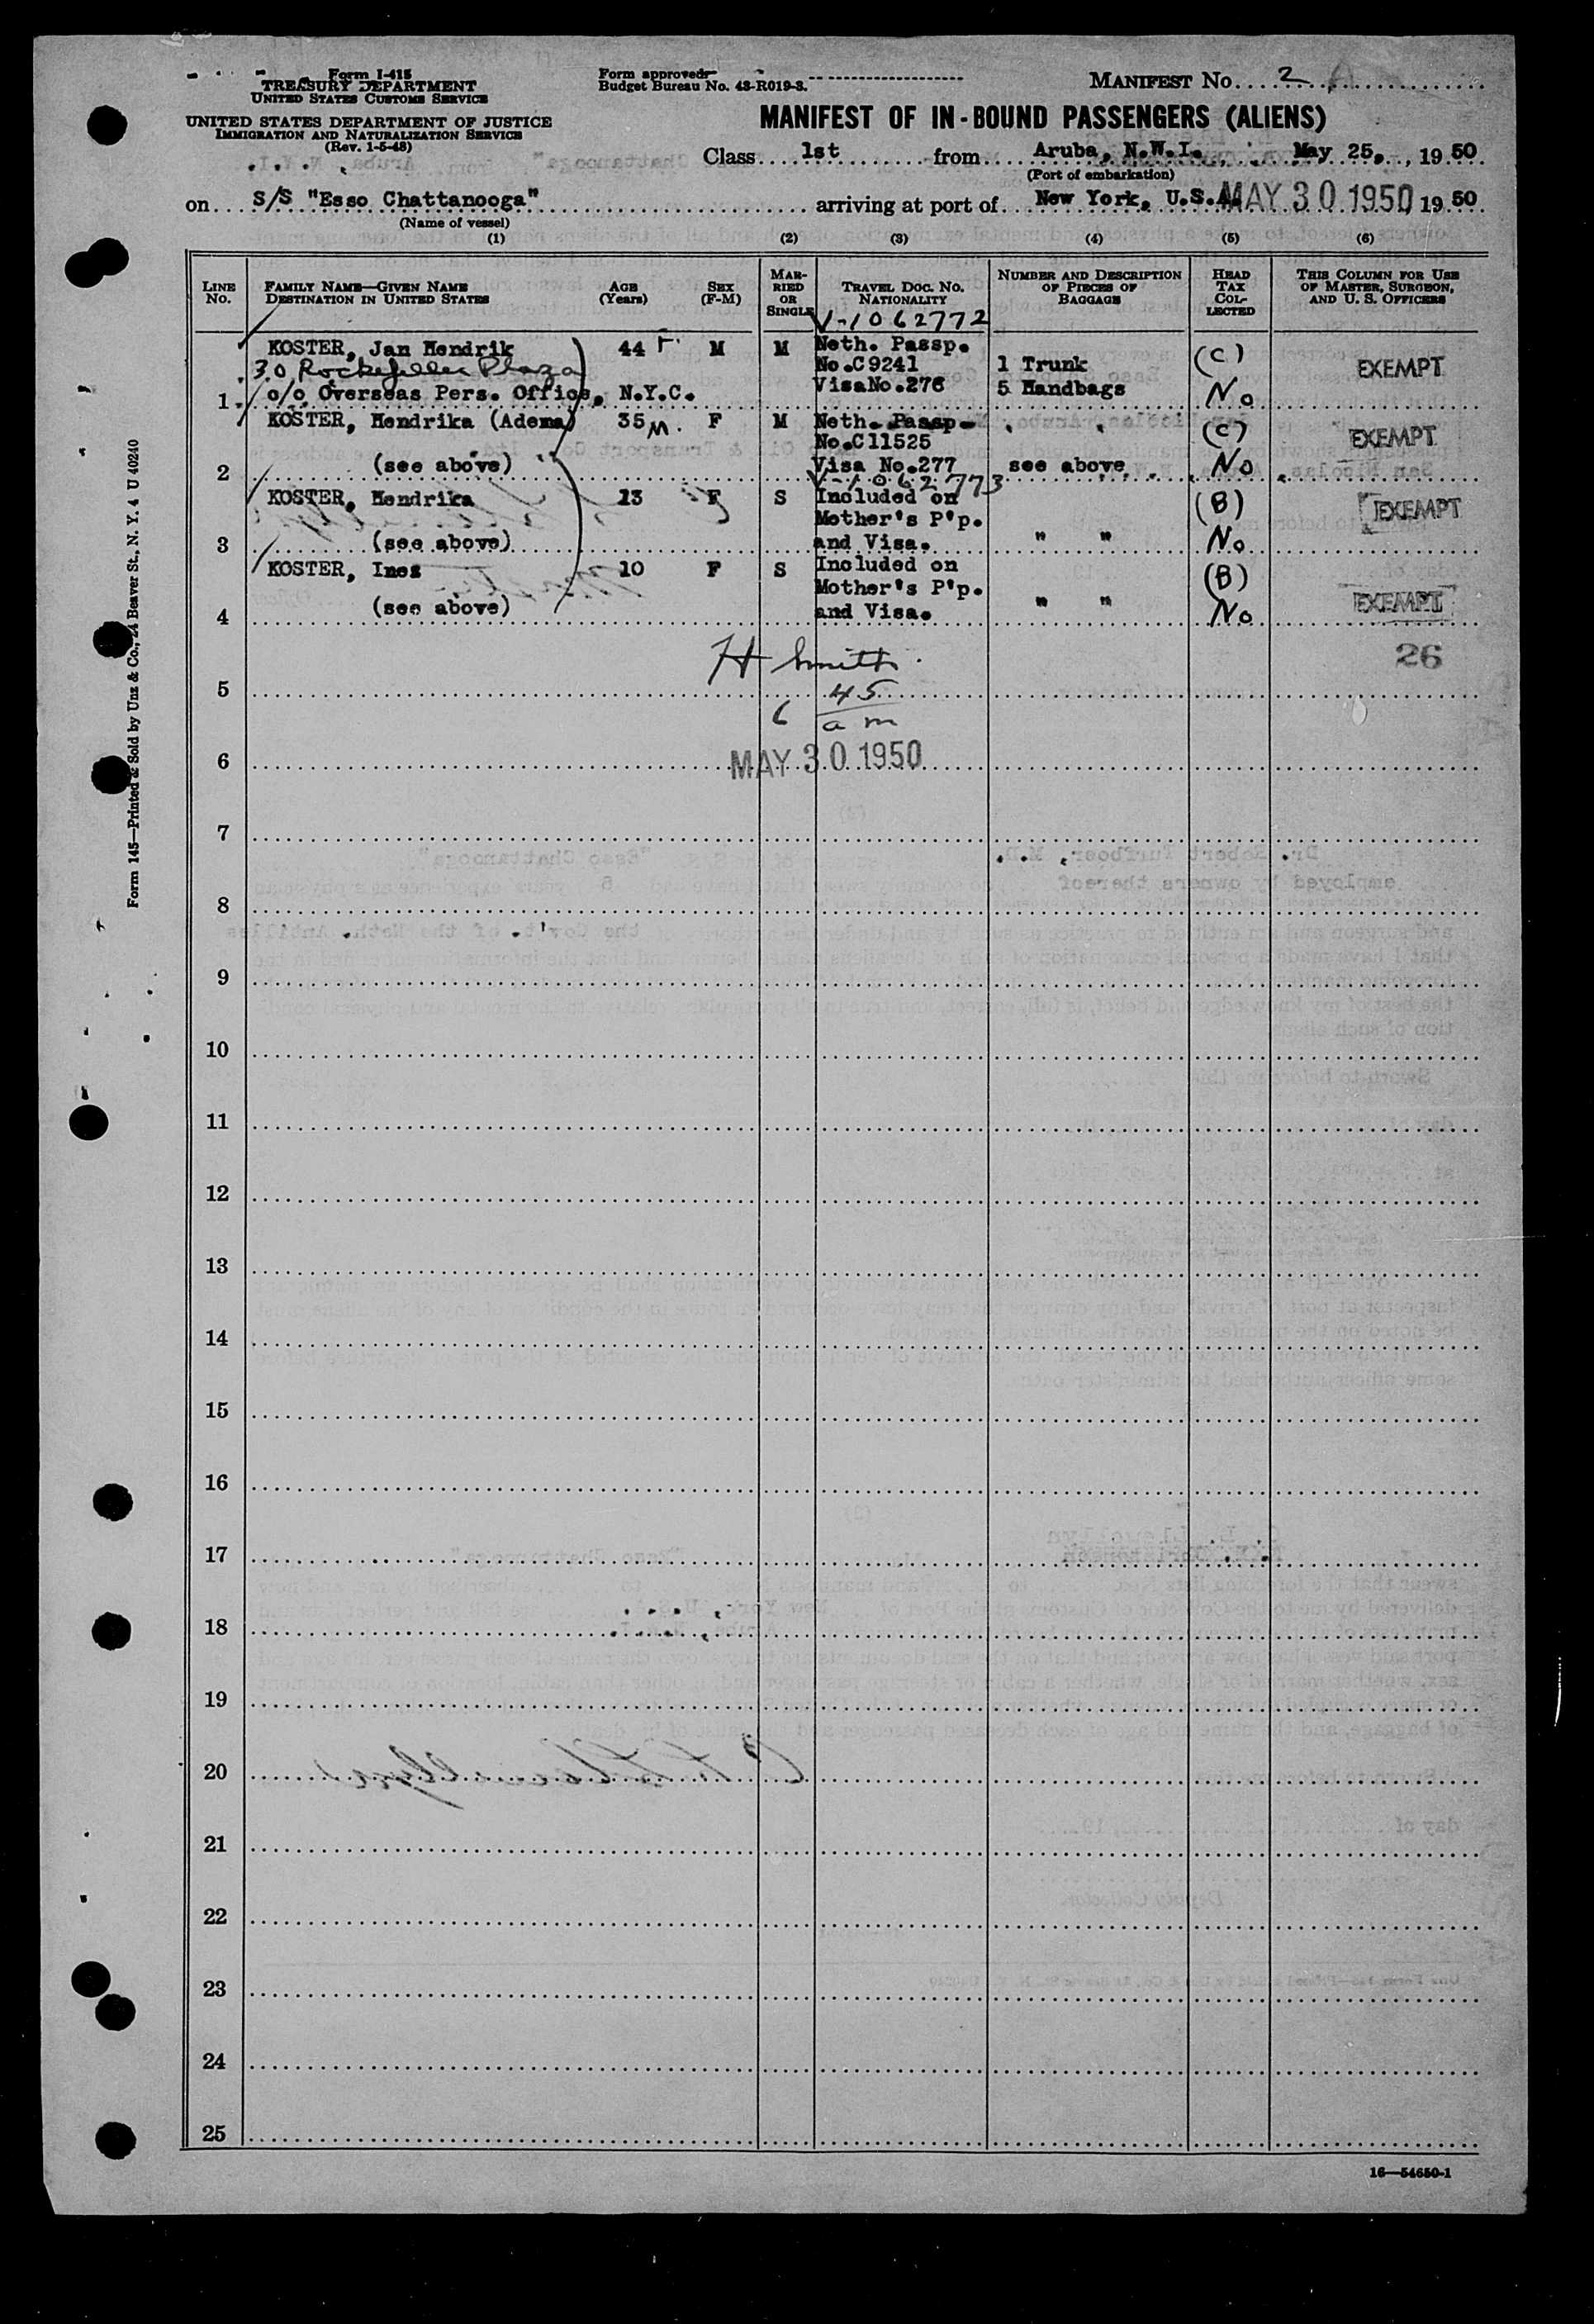 Form I-415
TREASURY DEPARTMENT
UNITED STATES CUSTOMS SERVICE
UNITED STATES DEPARTMENT OF JUSTICE
IMMIGRATION AND NATURALIZATION SERVICE
(Rev. 1-5-48)
Form approved
Budget Bureau No. 43-R019-3.
MANIFEST No. 2
MANIFEST OF IN-BOUND PASSENGERS (ALIENS)
Class 1st from Aruba, N.W.I., May 25, 1950
(Port of embarkation)
on S/S "Esso Chattanooga" arriving at port of New York, U.S.A. MAY 30 1950 1950
(Name of vessel)
(1) (2) (3) (4) (5) (6)
LINE No. FAMILY NAME—GIVEN NAME DESTINATION IN UNITED STATES AGE (Years) SEX (F-M) MARRIED OR SINGLE TRAVEL DOC. NO. NATIONALITY NUMBER AND DESCRIPTION OF PIECES OF BAGGAGE HEAD TAX COLLECTED THIS COLUMN FOR USE OF MASTER, SURGEON, AND U. S. OFFICERS
V-1062772
KOSTER, Jan Hendrik 44 M M Neth. Passp.
30 Rockefeller Plaza No.C9241 1 Trunk (C) EXEMPT
1 c/o Overseas Pers. Office, N.Y.C. VisaNo.276 5 Handbags No
KOSTER, Hendrika (Adema) 35 M. F M Neth. Passp.
No.C11525 (C) EXEMPT
2 (see above) Visa No.277 see above No
V-1062773
KOSTER, Hendrika 13 F S Included on (B) EXEMPT
Mother's P'p.
3 (see above) and Visa. " " No
KOSTER, Ines 10 F S Included on (B)
Mother's P'p.
4 (see above) and Visa. " " No EXEMPT
H Smith 26
5 45
6 am
6 MAY 30 1950
7
8
9
10
11
12
13
14
15
16
17
18
19
20
21
22
23
24
25
16—54650-1
Form 145—Printed & Sold by Unz & Co., 24 Beaver St., N. Y. 4 U 40240